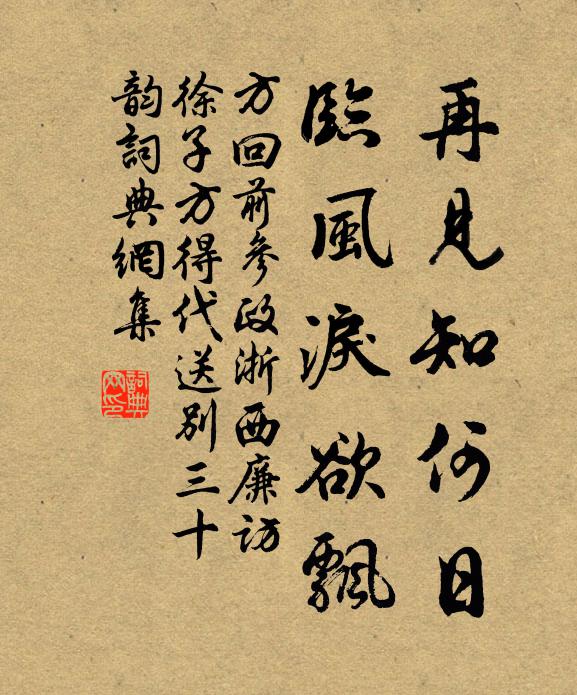 再見知何日
臨風淚欲飄
方回前參政浙西廉訪
徐子方得代送別三十
韵詞典網集
詞典
网印